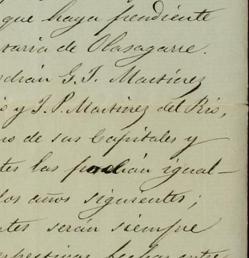 que haya pendiente
varia de Olasagarre.
drán G. J. Martinez
o y J. P. Martinez del Rio,
s de sus Capitales y
tes las podrán igual-
los años siguientes;
ntes serán siempre
fechas entre